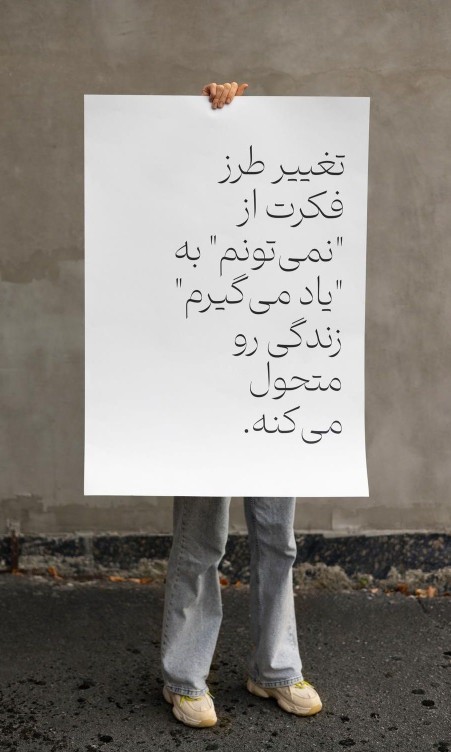 تغییر طرز
فکرت از
"نمی‌تونم" به
"یاد می‌گیرم"
زندگی رو
متحول
می‌کنه.